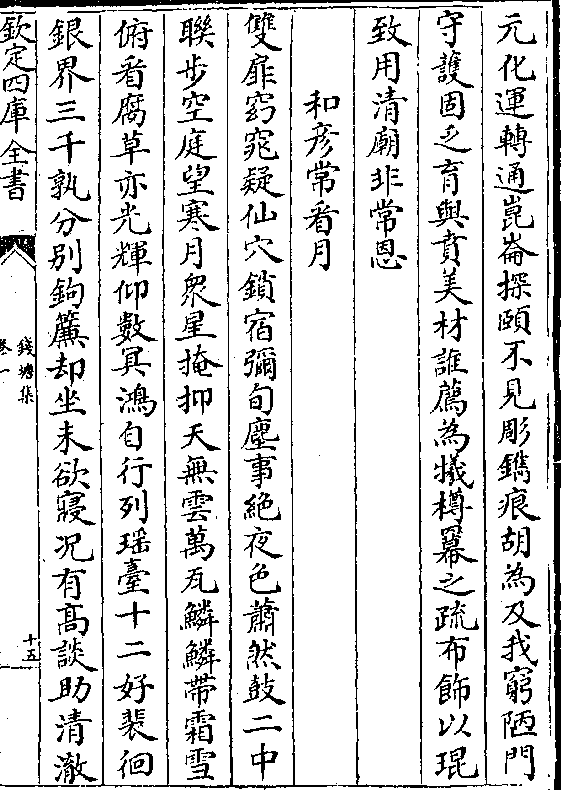 元化運轉通崑崙探頤不見彫鐫痕胡為及我窮陋門
守護固乏育與賁美材誰薦為犧樽羃之疏布飾以琨
致用清廟非常恩
和彦常看月
雙扉窈窕疑仙穴鎖宿彌旬塵事絶夜色蕭然鼓二中
聨步空庭望寒月衆星掩抑天無雲萬瓦鱗鱗帶霜雪
俯看腐草亦光輝仰數冥鴻自行列瑶臺十二好裴徊
銀界三千孰分别鉤簾却坐未欲寢况有髙談助清澈
欽定四庫全書
錢塘集
卷一
十五